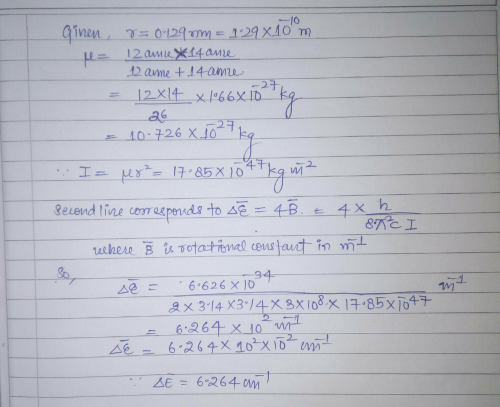 Given, r = 0.129 nm = 1.29 × 10⁻¹⁰ m
μ = 12 amu × 14 amu / 12 amu + 14 amu
= 12 × 14 / 26 × 1.66 × 10⁻²⁷ kg
= 10.726 × 10⁻²⁷ kg
∵ I = μr² = 17.85 × 10⁻⁴⁷ kg m⁻²
Second line corresponds to Δε̄ = 4B̄. = 4 × h / 8π²c I
where B̄ is rotational constant in m⁻¹
So,
Δε̄ = 6.626 × 10⁻³⁴ / 2 × 3.14 × 3.14 × 3 × 10⁸ × 17.85 × 10⁻⁴⁷ m⁻¹
= 6.264 × 10² m⁻¹
Δε̄ = 6.264 × 10² × 10⁻² cm⁻¹
∵ Δε̄ = 6.264 cm⁻¹